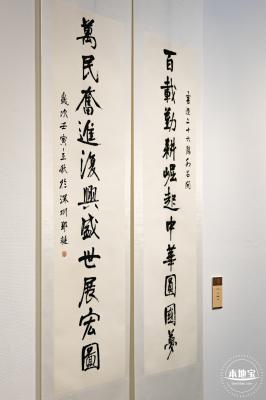 喜迎二十大勝利召開
百載勤耕崛起中華圓國夢
萬民奮進復興盛世展宏圖
歲次壬寅立秋於深圳鄭
本地宝